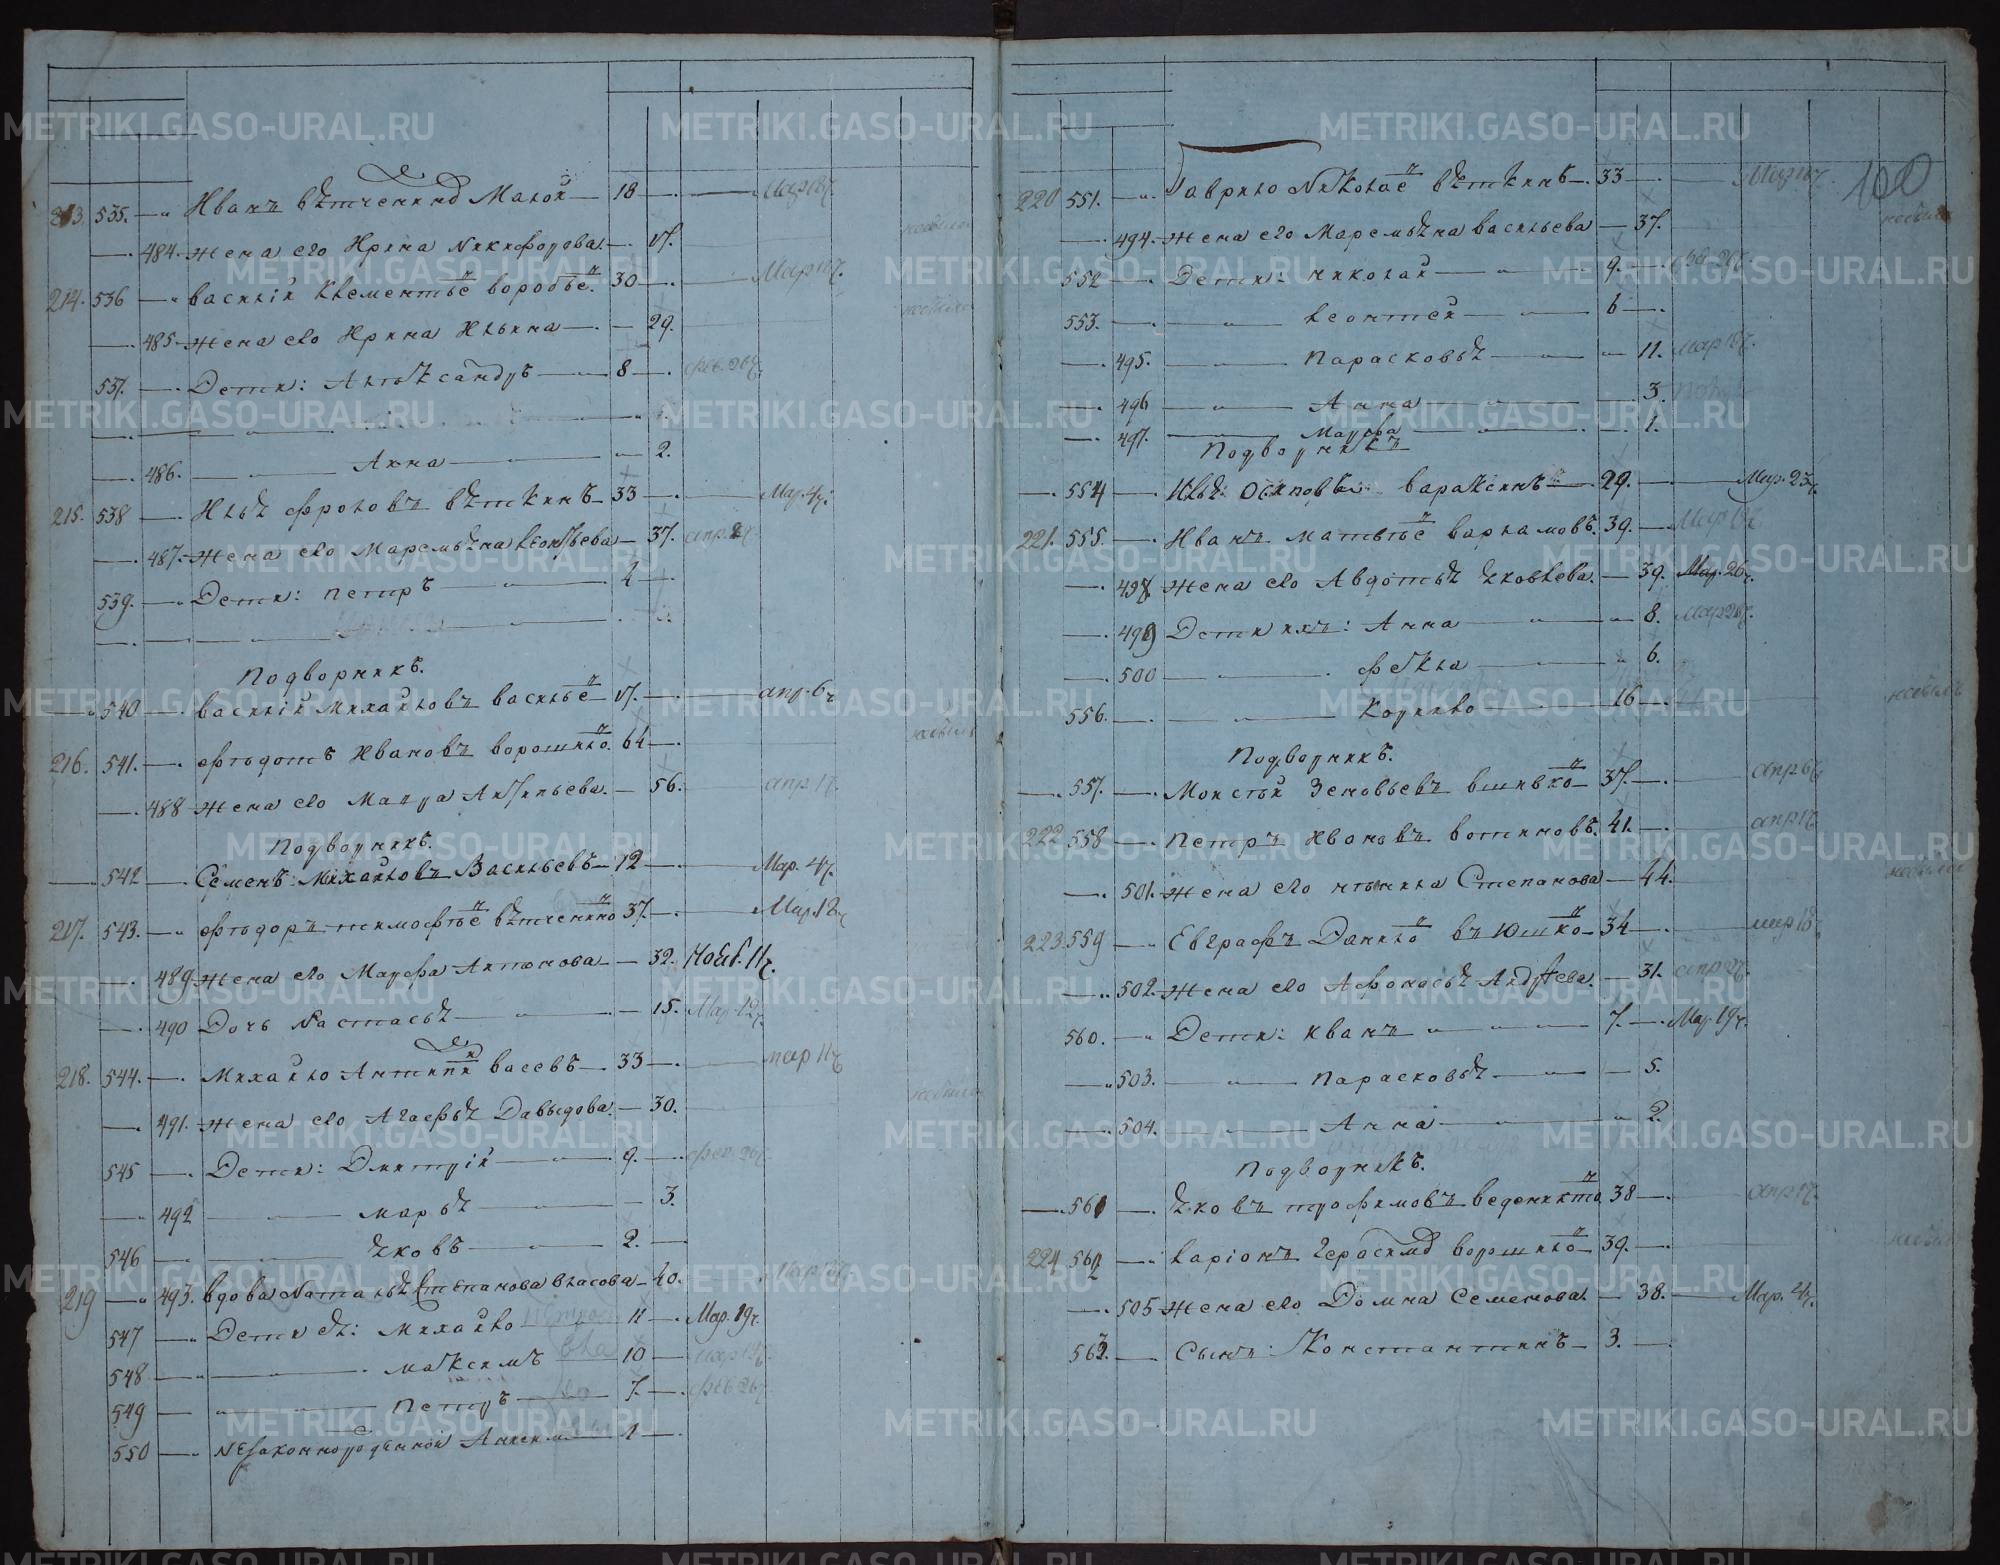 213. 535. Иванъ Вѣтченинъ Малой 18 Мар 18ч.
484. Жена его Ирина Никифорова 17. небыла
214. 536 Василій Клементьевъ Воробьевъ 30 Мар
485. Жена его Ирина Ильина 29. небыла
537. Дети: Алѣксандръ 8 фев. 26ч.
486. Анна 2.
215. 538 Ильѣ Фроловъ Вѣткинъ 33 Мар. 4ч.
487. Жена его Маремьѣна Леонтьева 37. апр. 2ч.
539. Дети: Петръ 4
Подворникъ.
540 Василій Михайловъ Васильевъ 17. апр. 6ч
216. 541. Фѣдотъ Ивановъ Ворошнино 64 небылъ
488 Жена его Мавра Антипьева. 56. апр 1ч.
Подворникъ.
542 Семенъ Михайловъ Васильевъ 12 Мар. 4ч.
217. 543. Фѣдоръ Тимофѣевъ Вѣтченино 37. Мар. 12ч
489 Жена его Марфа Антонова 32. Нояб. 11ч.
490 Дочь Настасьѣ 15. Мар. 12ч.
218. 544. Михайло Антипинъ Васевъ 33 мар 11ч
491. Жена его Агафьѣ Давыдова. 30. небыла
545 Дети: Дмитрій 9. фев. 26ч.
492 Марьѣ 3.
546 Ѣковъ 2.
219 493. Вдова Натальѣ Степанова Власова 40.
547 Дети еѣ: Михайло 11 Мар. 19ч.
548 Максимъ 10 мар 19ч.
549 Петръ 7. фев 26ч.
550 Незаконнорожденной 1
160
220 551. Гаврило Николаевъ Вѣткинъ 33 Мар
494. Жена его Маремьѣна Васильева 37. небыла
552 Дети: Николай 9.
553. Леонтей 6
495. Парасковьѣ 11. мар
496 Анна 3.
497. Марфа 1.
Подворникъ
554 Ильѣ Осиповъ Вараксинъ 29. Мар. 23ч
221. 555. Иванъ Матвѣевъ Варламовъ. 39. Мар
498 Жена его Авдотьѣ Ѣковлева. 39. Мар. 26ч.
499 Дети ихъ: Анна 8. Мар
500 Фекла 6.
556. Корнило 16 небылъ
Подворникъ.
557. Моисѣй Зеновьевъ Вшивко 37. апр 6ч
222 558 Петръ Ивановъ Вотиновъ. 41. апр
501. Жена его Степанова 44. небыла
223 559 Евграфъ Данило въ Юшко 34 мар 18ч
502. Жена его Афонасьѣ Андрѣева. 31. апр 2ч.
560. Дети: Иванъ 7. Мар. 19ч.
503. Парасковьѣ 5.
504. Анна 2.
Подворникъ.
561 Ѣковъ Трофимовъ Веденикто 38 апр
224 562 Ларіонъ Герасимъ Ворошнило 39. небылъ
505 Жена его Домна Семенова. 38. Мар. 4ч.
563. Сынъ: Константинъ 3.
METRIKI.GASO-URAL.RU